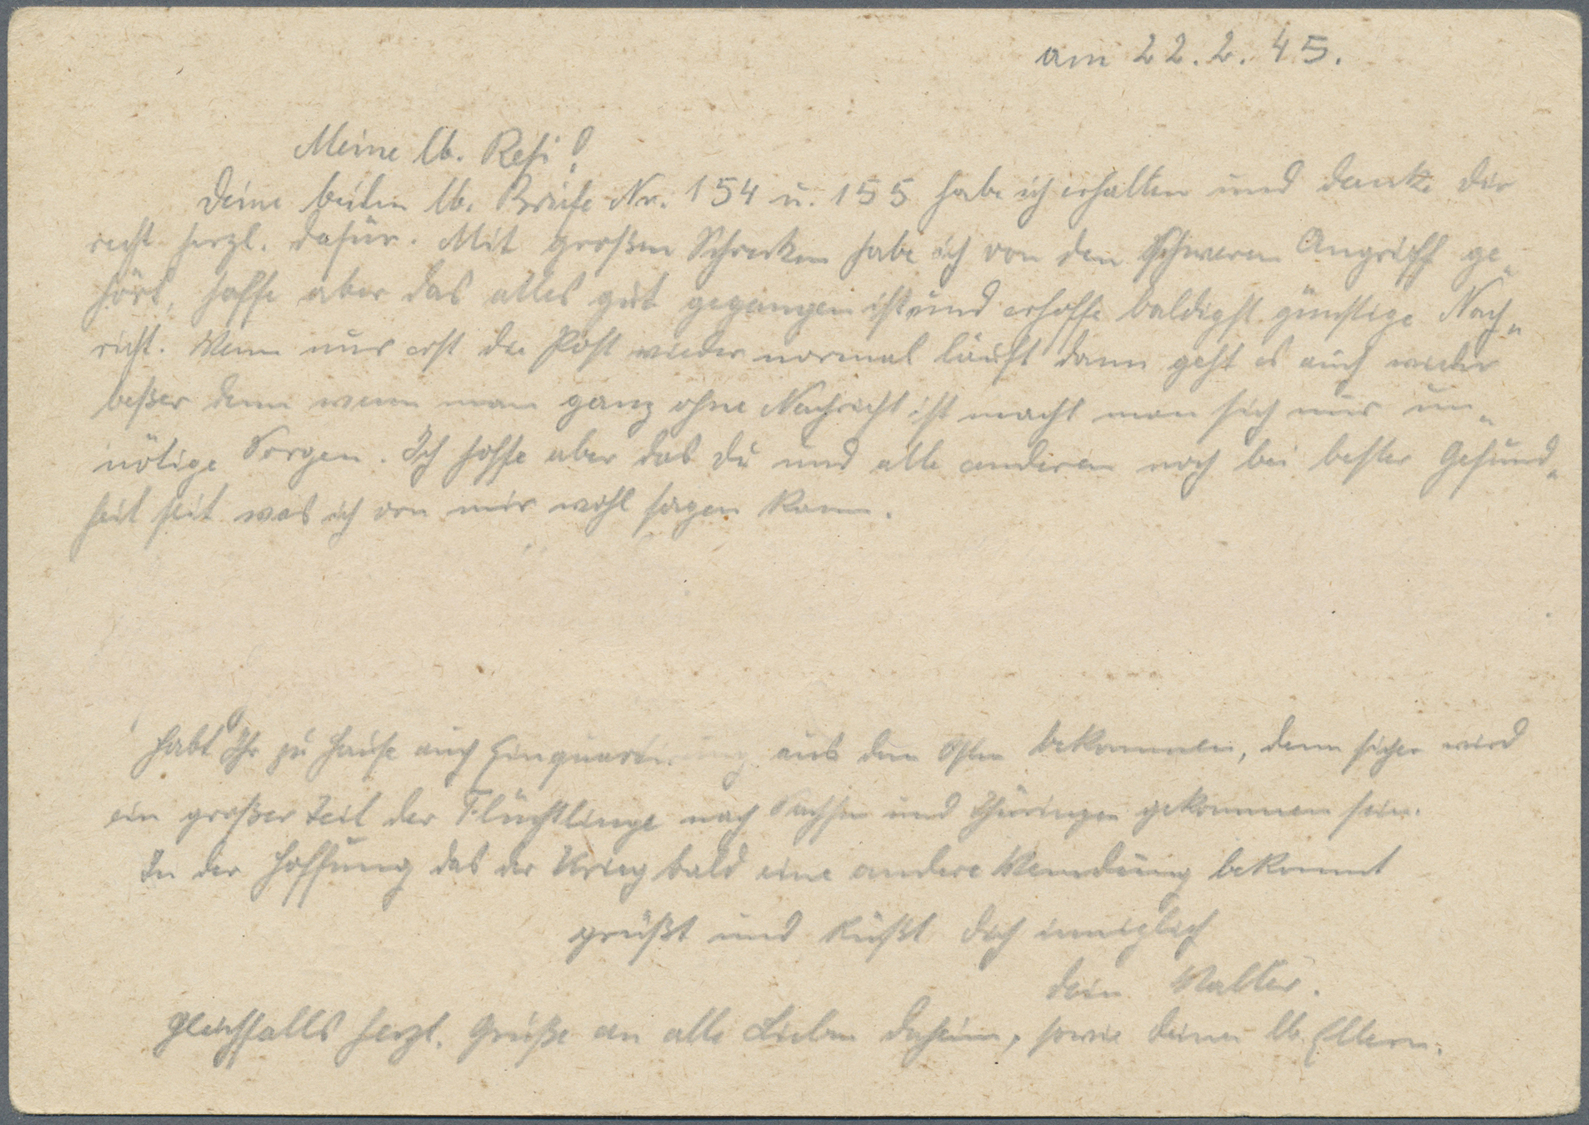 am 22.2.45.
Meine lb. Resi!
Deine beiden lb. Briefe Nr. 154 u. 155 habe ich erhalten und danke Dir
recht herzl. dafür. Mit großen Schrecken habe ich von den schweren Angriff ge„
hört, hoffe aber das alles gut gegangen ist und erhoffe baldigst günstige Nach„
richt. Wenn nur erst die Post wieder normal läuft dann geht es auch wieder
beßer denn wenn man ganz ohne Nachricht ist macht man sich nur un„
nötige Sorgen. Ich hoffe aber das Du und alle anderen noch bei bester Gesund„
heit seit was ich von mir wohl sagen kann.
Habt Ihr zu Hause auch Einquartierung aus dem Osten bekommen, denn sicher wird
ein großer Teil der Flüchtlinge nach Sachsen und Thüringen gekommen sein.
In der Hoffnung das der Krieg bald eine andere Wendung bekommt
grüßt und küßt Dich inniglich
Dein Walter.
Gleichfalls herzl. Grüße an alle Lieben daheim, sowie Deinen lb. Eltern.